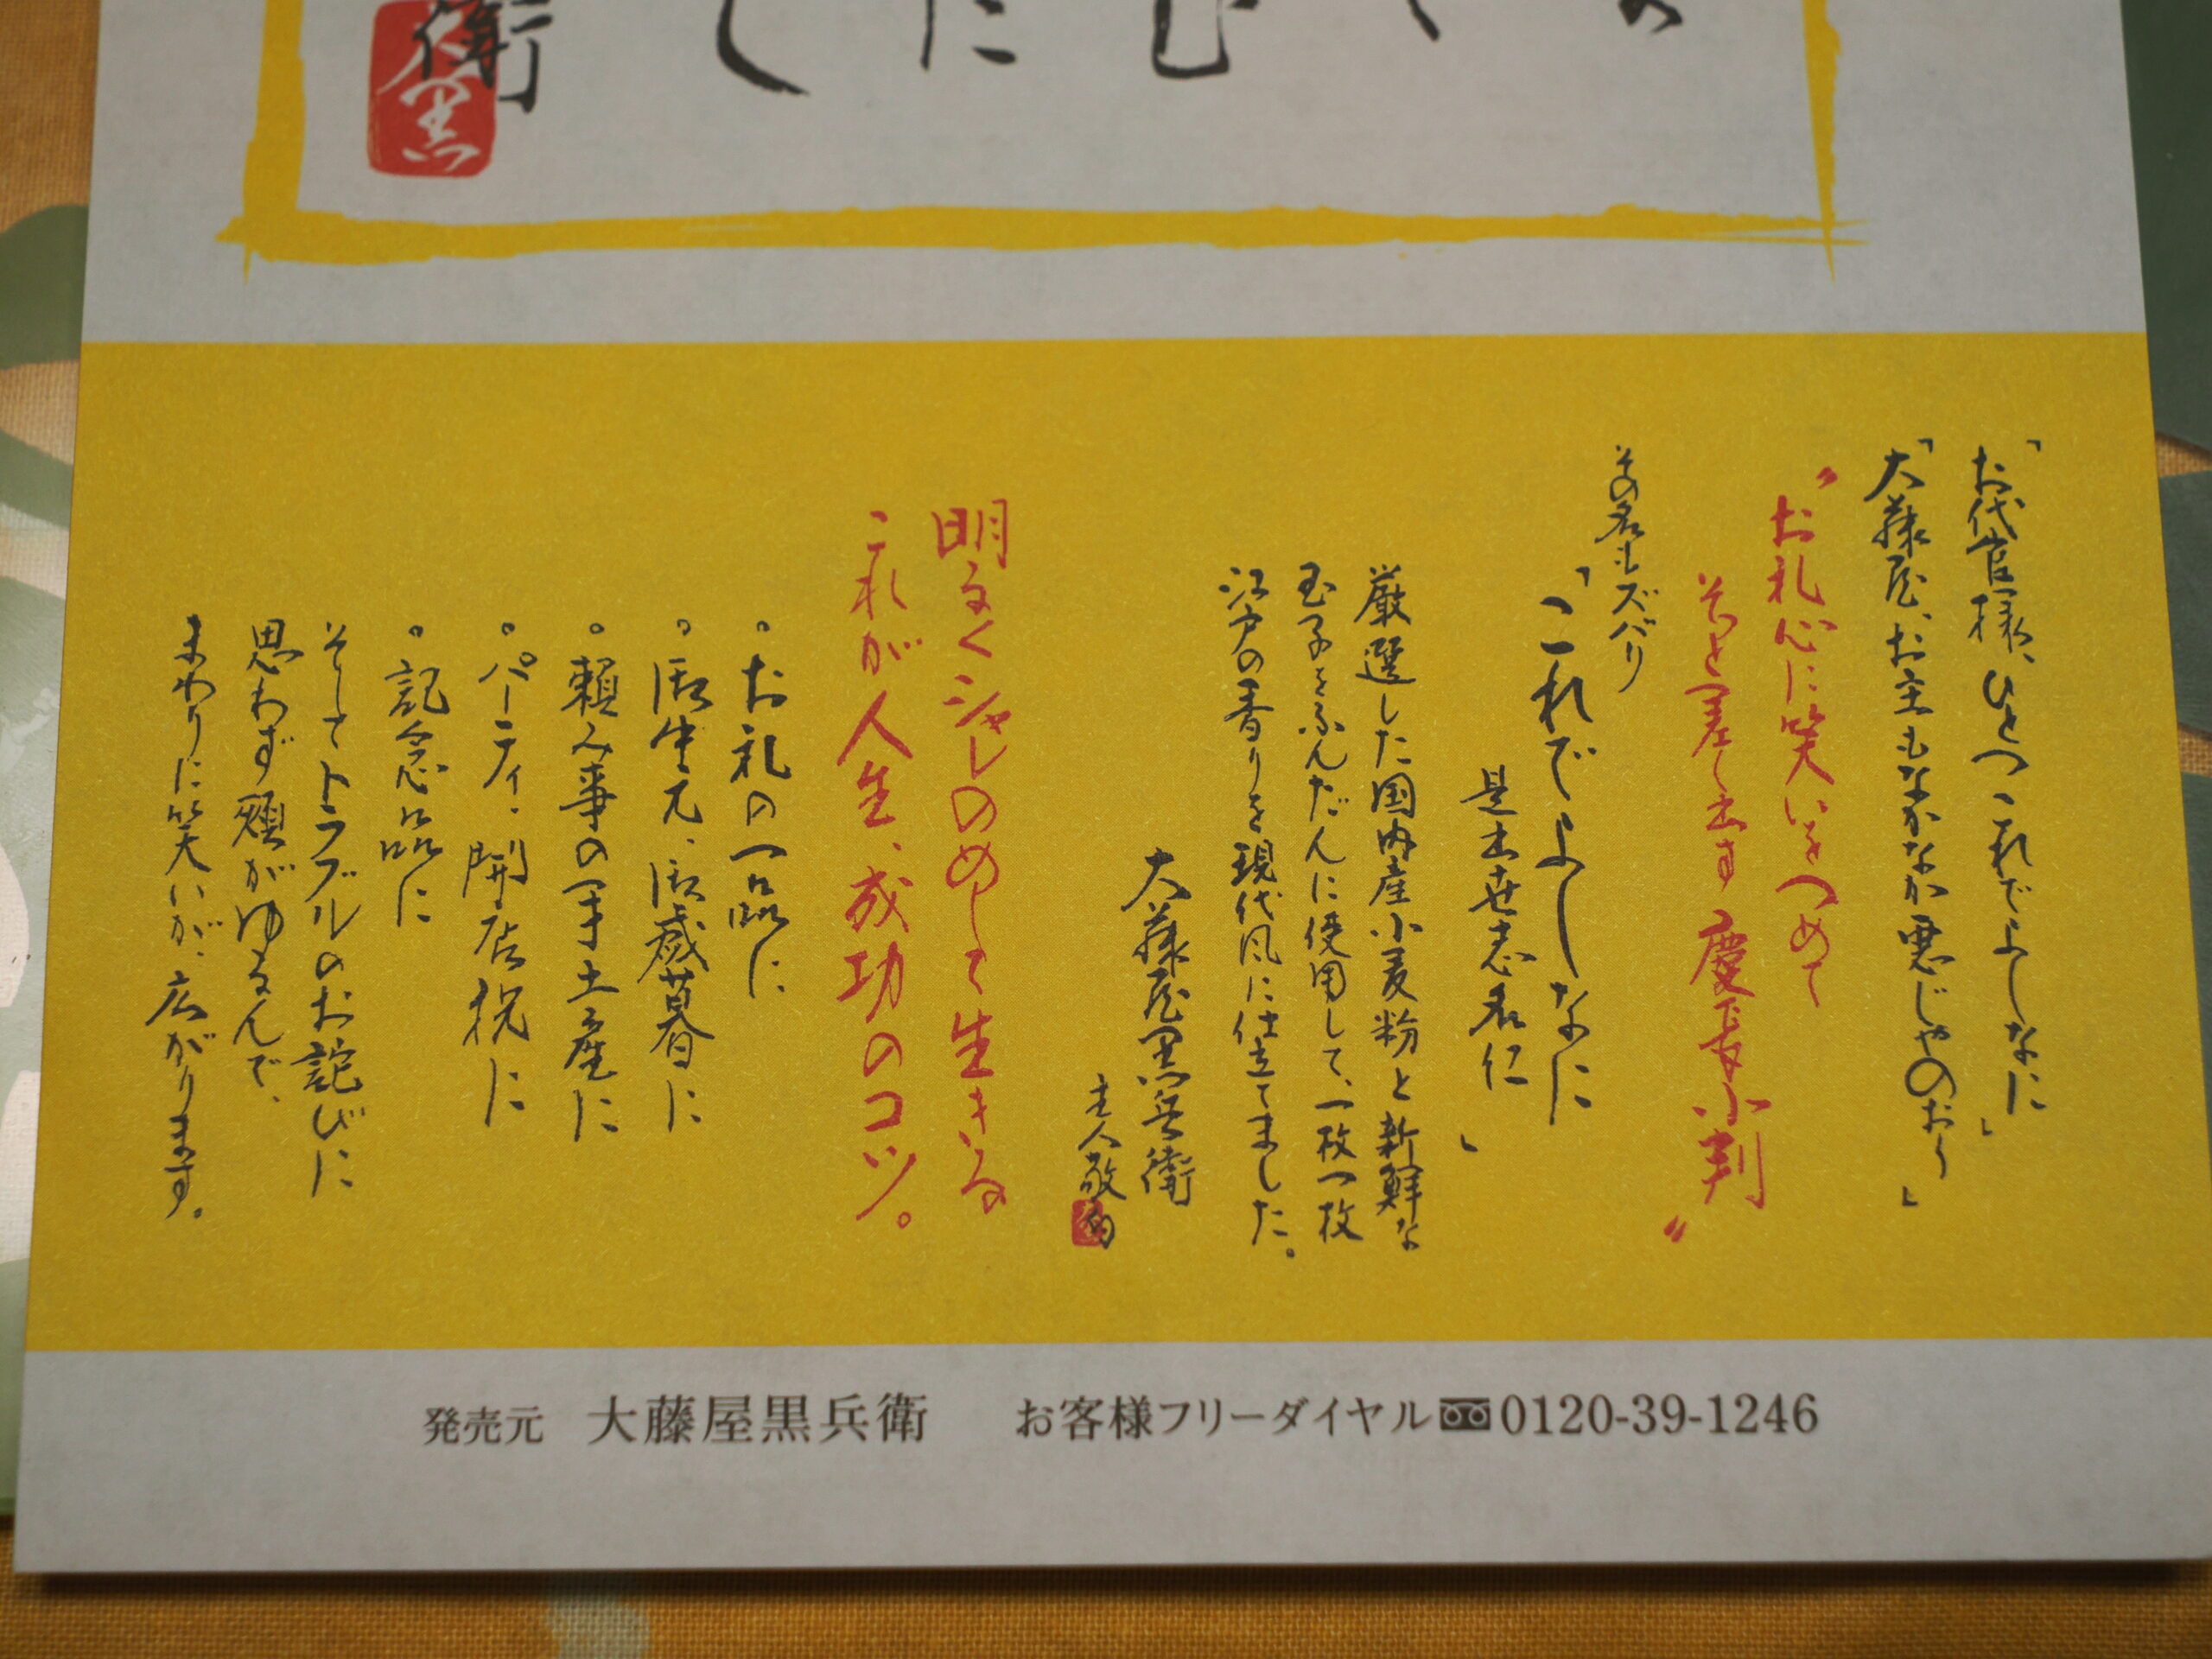 衛
黒
むた
し
「お代官様、ひとつこれでよしなに」
「大藤屋、お主もなかなか悪じゃのおぅ」
〝お礼心に笑いをつめて
そっと差し出す慶長小判〟
その名もズバリ
「これでよしなに
是出世志名仁」
厳選した国内産小麦粉と新鮮な
玉子をふんだんに使用して、一枚一枚
江戸の香りを現代風に仕立てました。
大藤屋黒兵衛
主人敬白
明るくシャレのめして生きる
これが人生、成功のコツ。
。お礼の一品に
。御中元、御歳暮に
。頼み事の手土産に
。パーティ、開店祝に
。記念品に
そしてトラブルのお詫びに
思わず頬がゆるんで、
まわりに笑いが、広がります。
発売元 大藤屋黒兵衛 お客様フリーダイヤル0120-39-1246